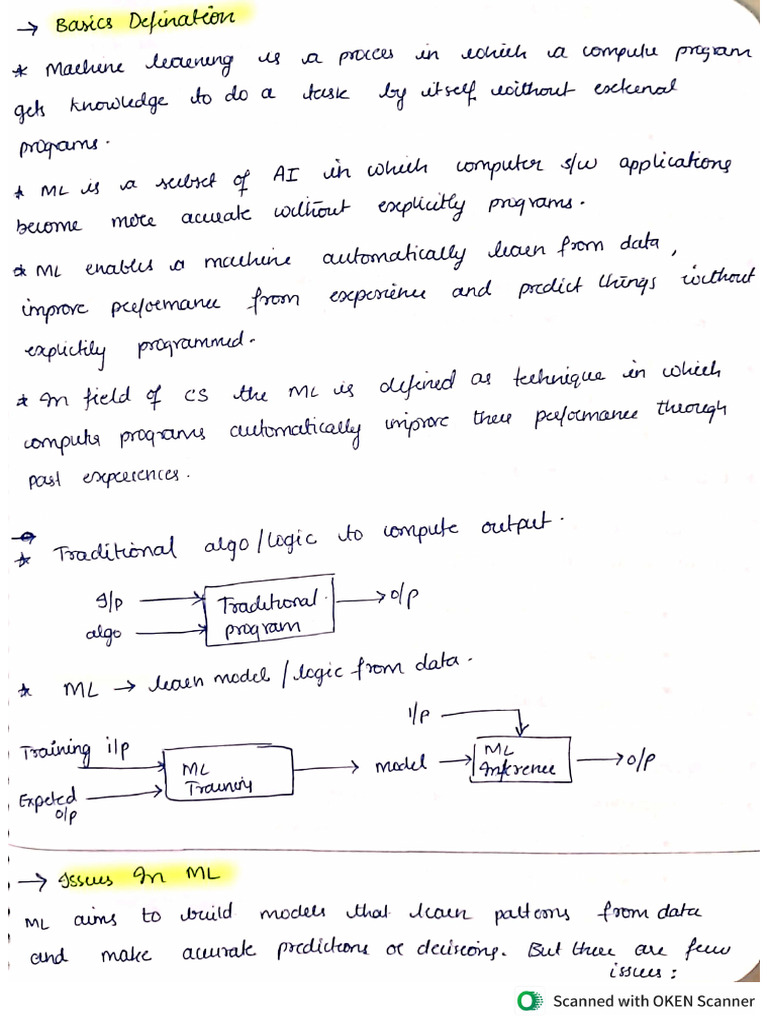 → Basics Defination
* Machine learning is a procces in which a compute program
gets knowledge to do a task by itself without external
programs.
* ML is a subset of AI in which computer s/w applications
become more accurate without explicitly programs.
* ML enables a machine automatically learn from data,
improve performance from experience and predict things without
explicitily programmed.
* In field of CS the ML is defined as technique in which
compute programs automatically improve there performance through
past experiences.
* Traditional algo/logic to compute output.
I/p
algo
Traditional
program
o/p
* ML → learn model/logic from data.
I/p
Training i/p
Expeted
o/p
ML
Training
model
ML
Inference
o/p
→ Issues In ML
ML aims to build models that learn patterns from data
and make accurate predictions or decisions. But there are few
issues:
Scanned with OKEN Scanner